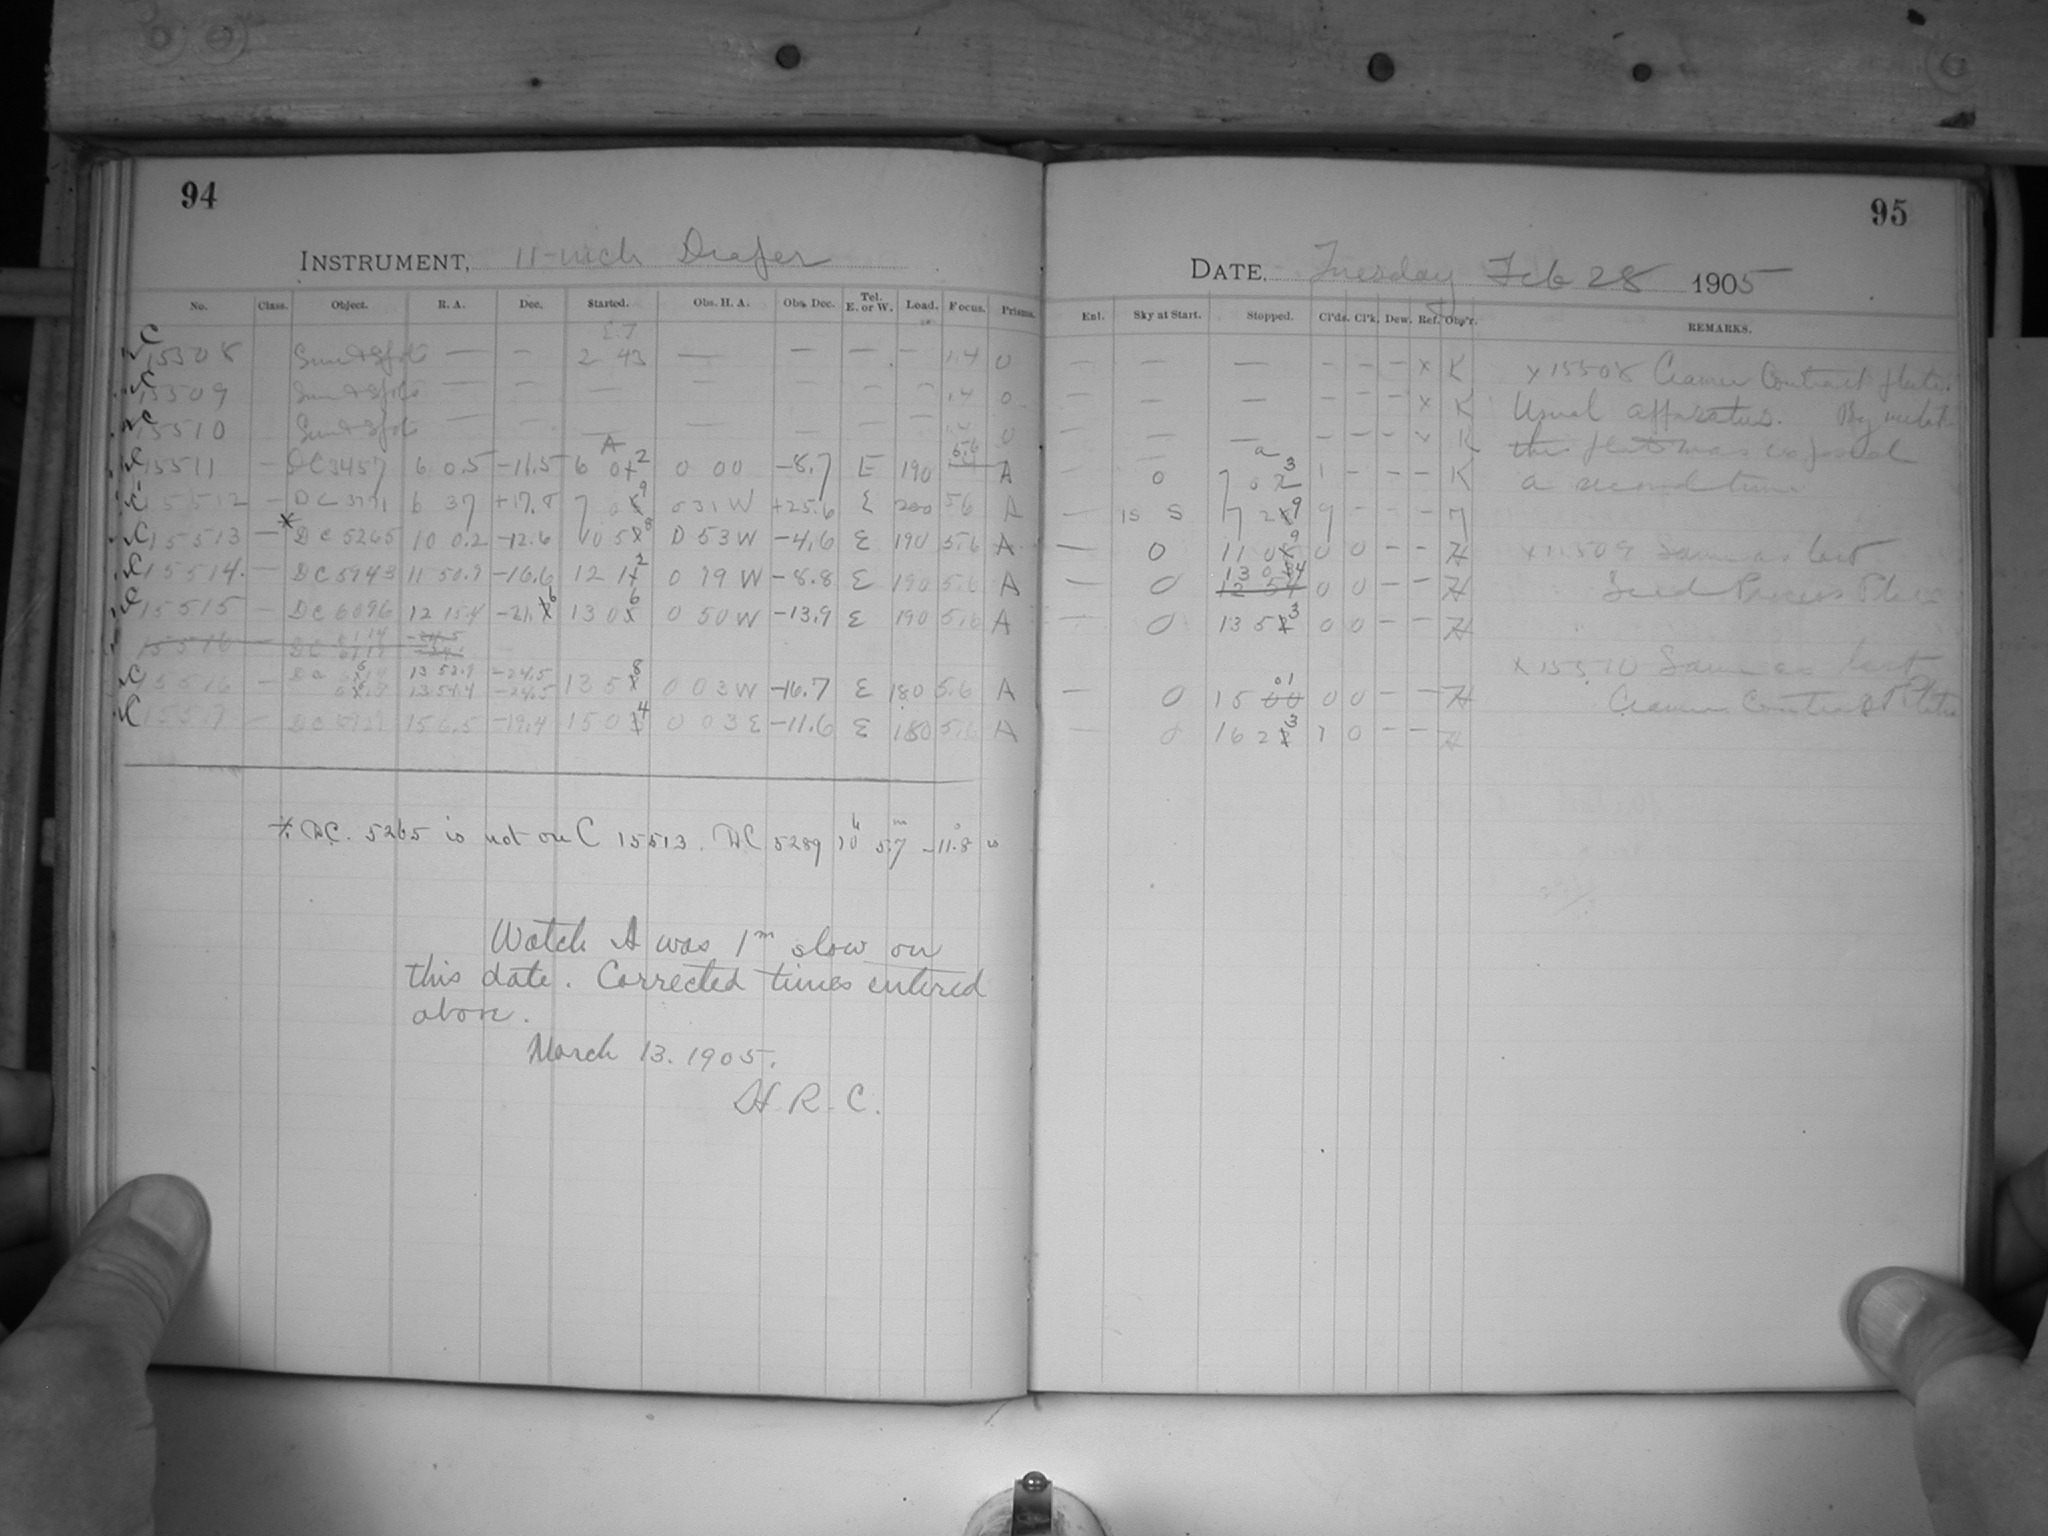 94
INSTRUMENT, 11-inch Draper
No. Class. Object. R. A. Dec. Started. Obs. H. A. Obs. Dec. Tel. E. or W. Load. Focus. Prisms.
E.T
C 15508 Sun & Spots — — 2 43 — — — — 1.4 0
C 15509 Sun & Spots — — — — — — — 1.4 0
C 15510 Sun & Spots — — — — — — — 1.4 0
A
C 15511 — DC 3457 6 0.5 -11.5 6 02 0 00 -8.7 E 190 5.6 A
C 15512 — DC 3771 6 37 +17.8 7 09 0 31 W +25.6 E 200 5.6 A
C 15513 — * DC 5265 10 0.2 -12.6 10 58 0 53 W -4.6 E 190 5.6 A
C 15514 — DC 5943 11 50.9 -16.6 12 12 0 19 W -8.8 E 190 5.6 A
C 15515 — DC 6096 12 15.4 -21.6 13 06 0 50 W -13.9 E 190 5.6 A
15516 — DC
C 15516 — DC 13 52.9 -24.5 13 58 0 03 W -16.7 E 180 5.6 A
13 54.4 -24.5
C 15517 — DC 15 6.5 -19.4 15 04 0 03 E -11.6 E 180 5.6 A
* DC. 5265 is not on C 15513. DC 5289 10h 5.7m -11.8° is
Watch A was 1m slow on
this date. Corrected times entered
above.
March 13. 1905.
H. R. C.
95
DATE, Tuesday Feb 28 1905
Enl. Sky at Start. Stopped. Cl'ds. Cl'k. Dew. Ref. Obs'r. REMARKS.
— — — — — — x K
— — — — — — x K
— — — — — — x K
a
— 0 7 03 1 — — — K
— 15 S 7 29 9 — — — 7
— 0 11 09 0 0 — — H
— 0 12 54 13 04 0 0 — — H
— 0 13 53 0 0 — — H
— 0 15 00 01 0 0 — — H
— 0 16 23 1 0 — — H
x 15508 Cramer Contrast plate.
Usual apparatus. By
the plate was exposed
a second time
x 15509 Same as last
Seed Process Plate
x 15510 Same as last
Cramer Contrast Plate